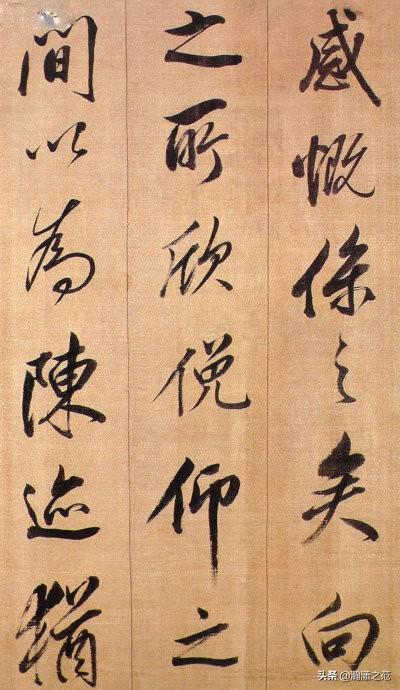 感慨係之矣向
之所欣俛仰之
間以為陳迹猶
头条 @瀚潇之范